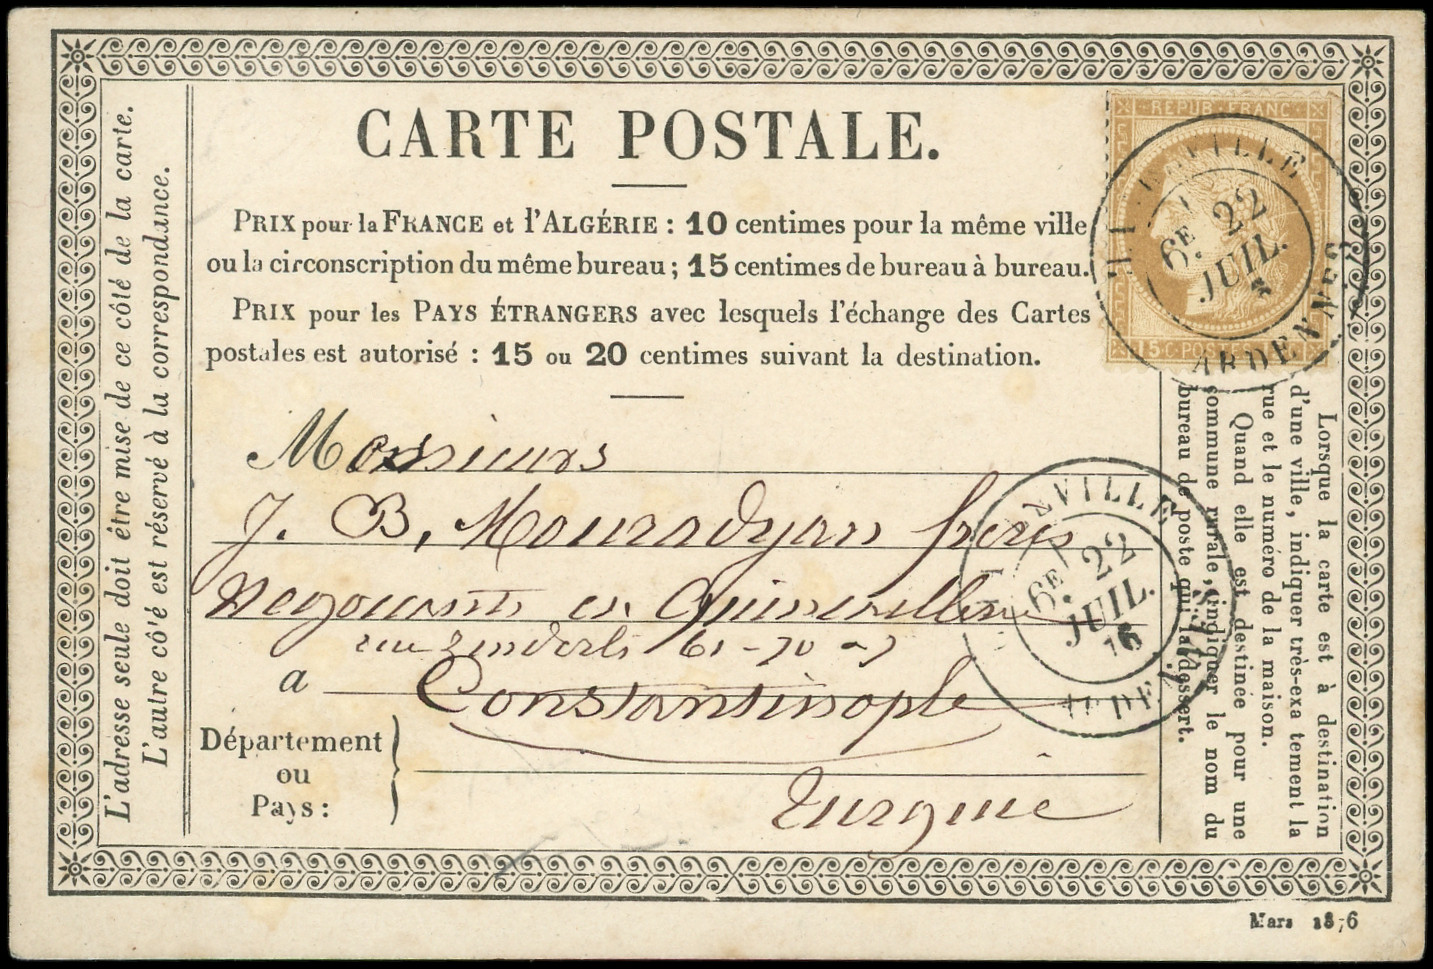 CARTE POSTALE.
PRIX pour la FRANCE et l'ALGÉRIE : 10 centimes pour la même ville
ou la circonscription du même bureau ; 15 centimes de bureau à bureau.
PRIX pour les PAYS ÉTRANGERS avec lesquels l'échange des Cartes
postales est autorisé : 15 ou 20 centimes suivant la destination.
L'adresse seule doit être mise de ce côté de la carte.
L'autre cô'é est réservé à la correspondance.
REPUB·FRANC·
15 C POS
6E 22
JUIL.
ARDENNES
Monsieurs
J. B. Mouradyan frères
Negociants en Quincaillerie
61-70
a Constantinople
Département
ou
Pays :
Turquie
6E 22
JUIL.
76
ARDENNES
Lorsque la carte est à destination
d'une ville, indiquer très-exa tement la
rue et le numéro de la maison.
Quand elle est destinée pour une
commune rurale, indiquer le nom du
bureau de poste qui la dessert.
Mars 1876